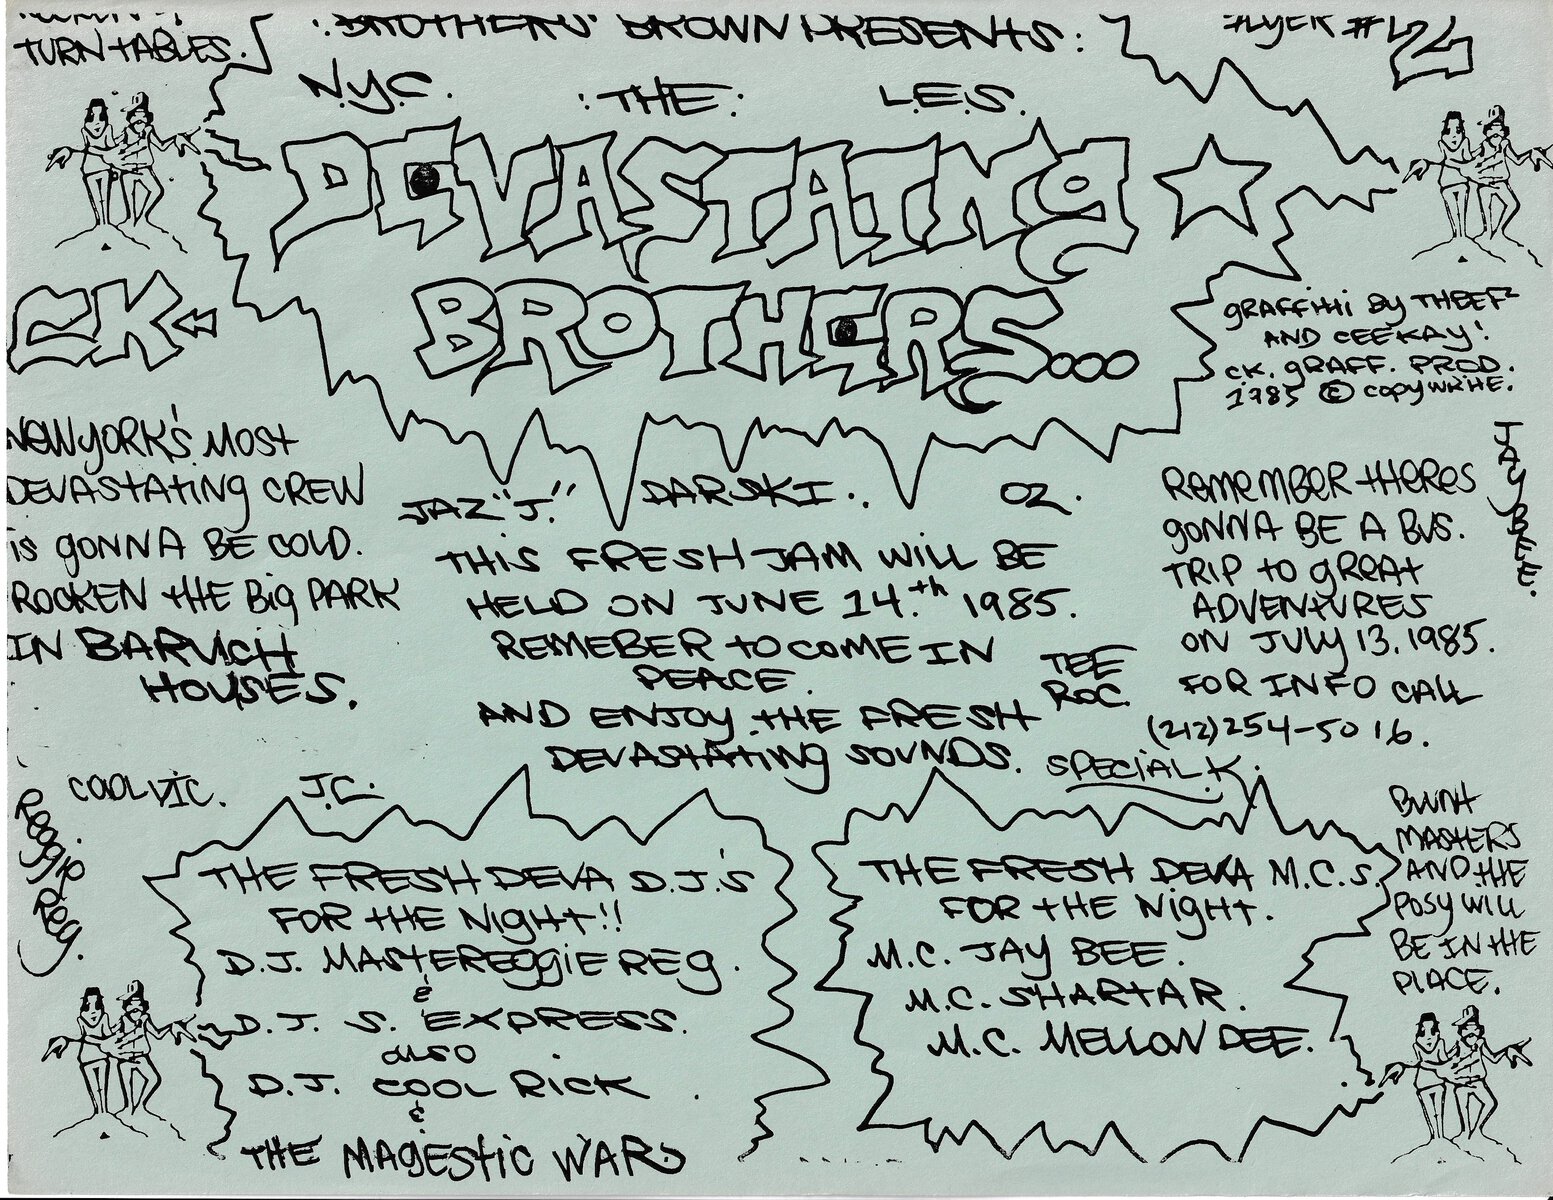 TURNTABLES.
: BROTHERS BROWN PRESENTS :
FLYER #2
N.Y.C. : THE : L.E.S.
DEVASTATNG
BROTHERS...
CK
GRAFFITTI BY THEEF2
AND CEEKAY!
CK. GRAFF. PROD.
1985 © COPYWRITE.
NEW YORK'S MOST
DEVASTATING CREW
IS GONNA BE COLD.
ROCKEN THE BIG PARK
IN BARUCH
HOUSES.
JAZ "J." DARSKI. OZ.
THIS FRESH JAM WILL BE
HELD ON JUNE 14.th 1985.
REMEBER TO COME IN
PEACE.
AND ENJOY THE FRESH
DEVASTATING SOUNDS.
TEE
ROC.
SPECIAL K.
REMEMBER THERES
GONNA BE A BUS.
TRIP TO GREAT
ADVENTURES
ON JULY 13, 1985.
FOR INFO CALL
(212) 254-5016.
JAY BEE.
COOL VIC. J.C.
REGGIE REG.
THE FRESH DEVA D.J.'S
FOR THE NIGHT!!
D.J. MASTEREGGIE REG.
&
D.J. S. EXPRESS.
ALSO
D.J. COOL RICK
&
THE MAGESTIC WAR
THE FRESH DEVA M.C.S.
FOR THE NIGHT.
M.C. JAY BEE.
M.C. SHARTAR.
M.C. MELLOW DEE.
BLUNT
MASTERS
AND THE
POSY WILL
BE IN THE
PLACE.